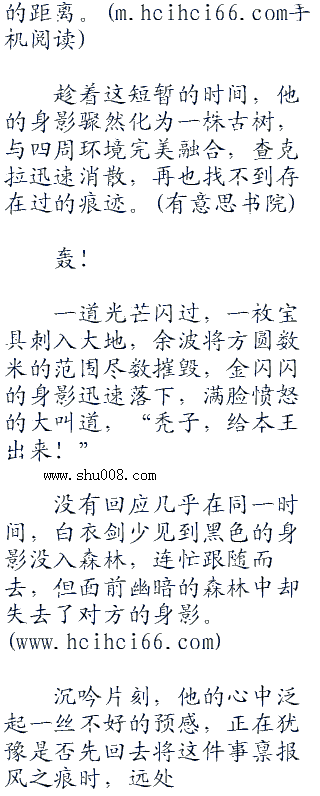 的距离。(m.hcihci66.com手
机阅读)
趁着这短暂的时间，他
的身影骤然化为一株古树，
与四周环境完美融合，查克
拉迅速消散，再也找不到存
在过的痕迹。(有意思书院)
轰！
一道光芒闪过，一枚宝
具刺入大地，余波将方圆数
米的范围尽数摧毁，金闪闪
的身影迅速落下，满脸愤怒
的大叫道，“秃子，给本王
出来！”
www.shu008.com
没有回应几乎在同一时
间，白衣剑少见到黑色的身
影没入森林，连忙跟随而
去，但面前幽暗的森林中却
失去了对方的身影。
(www.hcihci66.com)
沉吟片刻，他的心中泛
起一丝不好的预感，正在犹
豫是否先回去将这件事禀报
风之痕时，远处